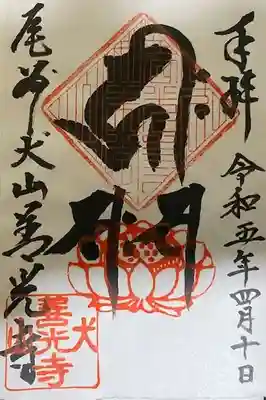 奉拝
令和五年四月十日
尾州犬山善光寺
犬山
善光寺